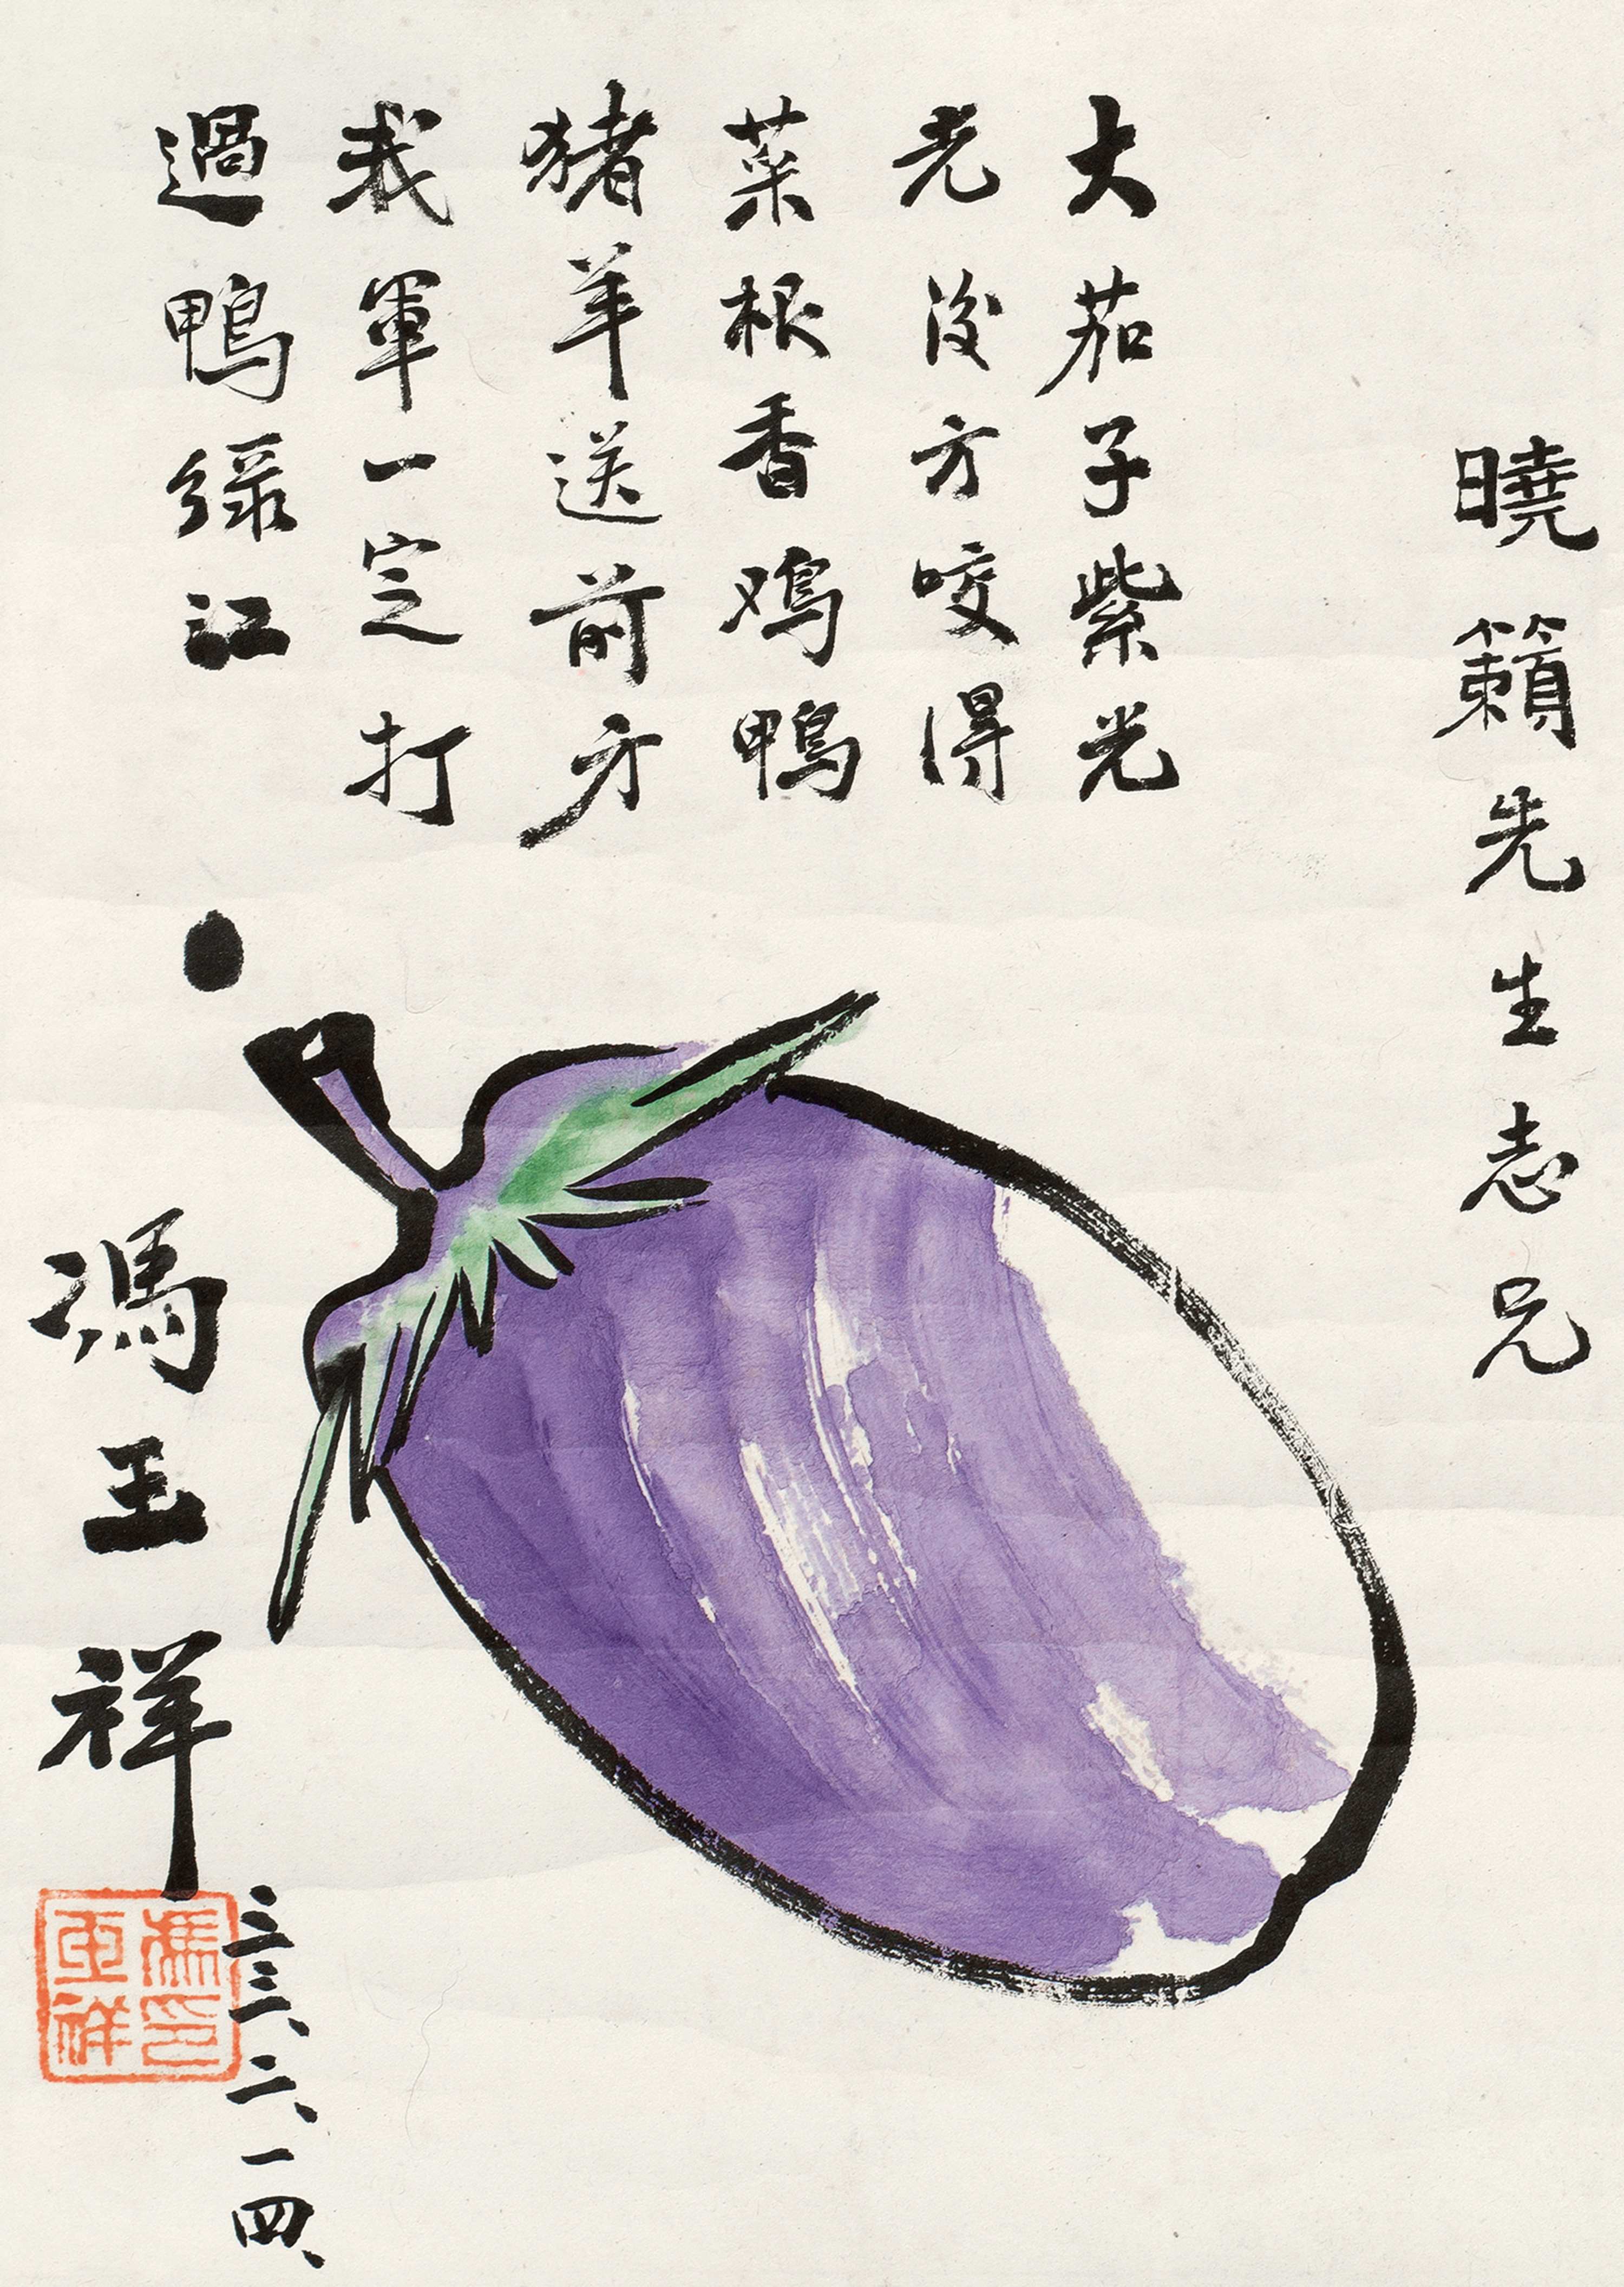 曉籟先生志兄
大茄子紫光
光後方咬得
菜根香鸡鴨
猪羊送前方
我軍一定打
過鴨綠江
馮玉祥
三三、二、一四、
馮印玉祥